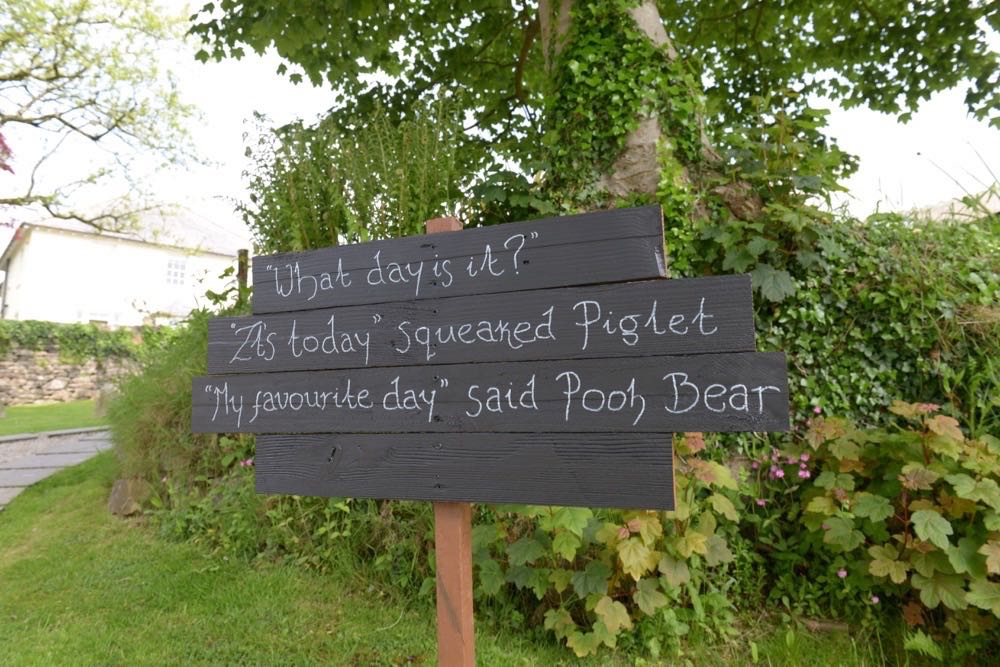 "What day is it?"
"It's today" squeaked Piglet
"My favourite day" said Pooh Bear